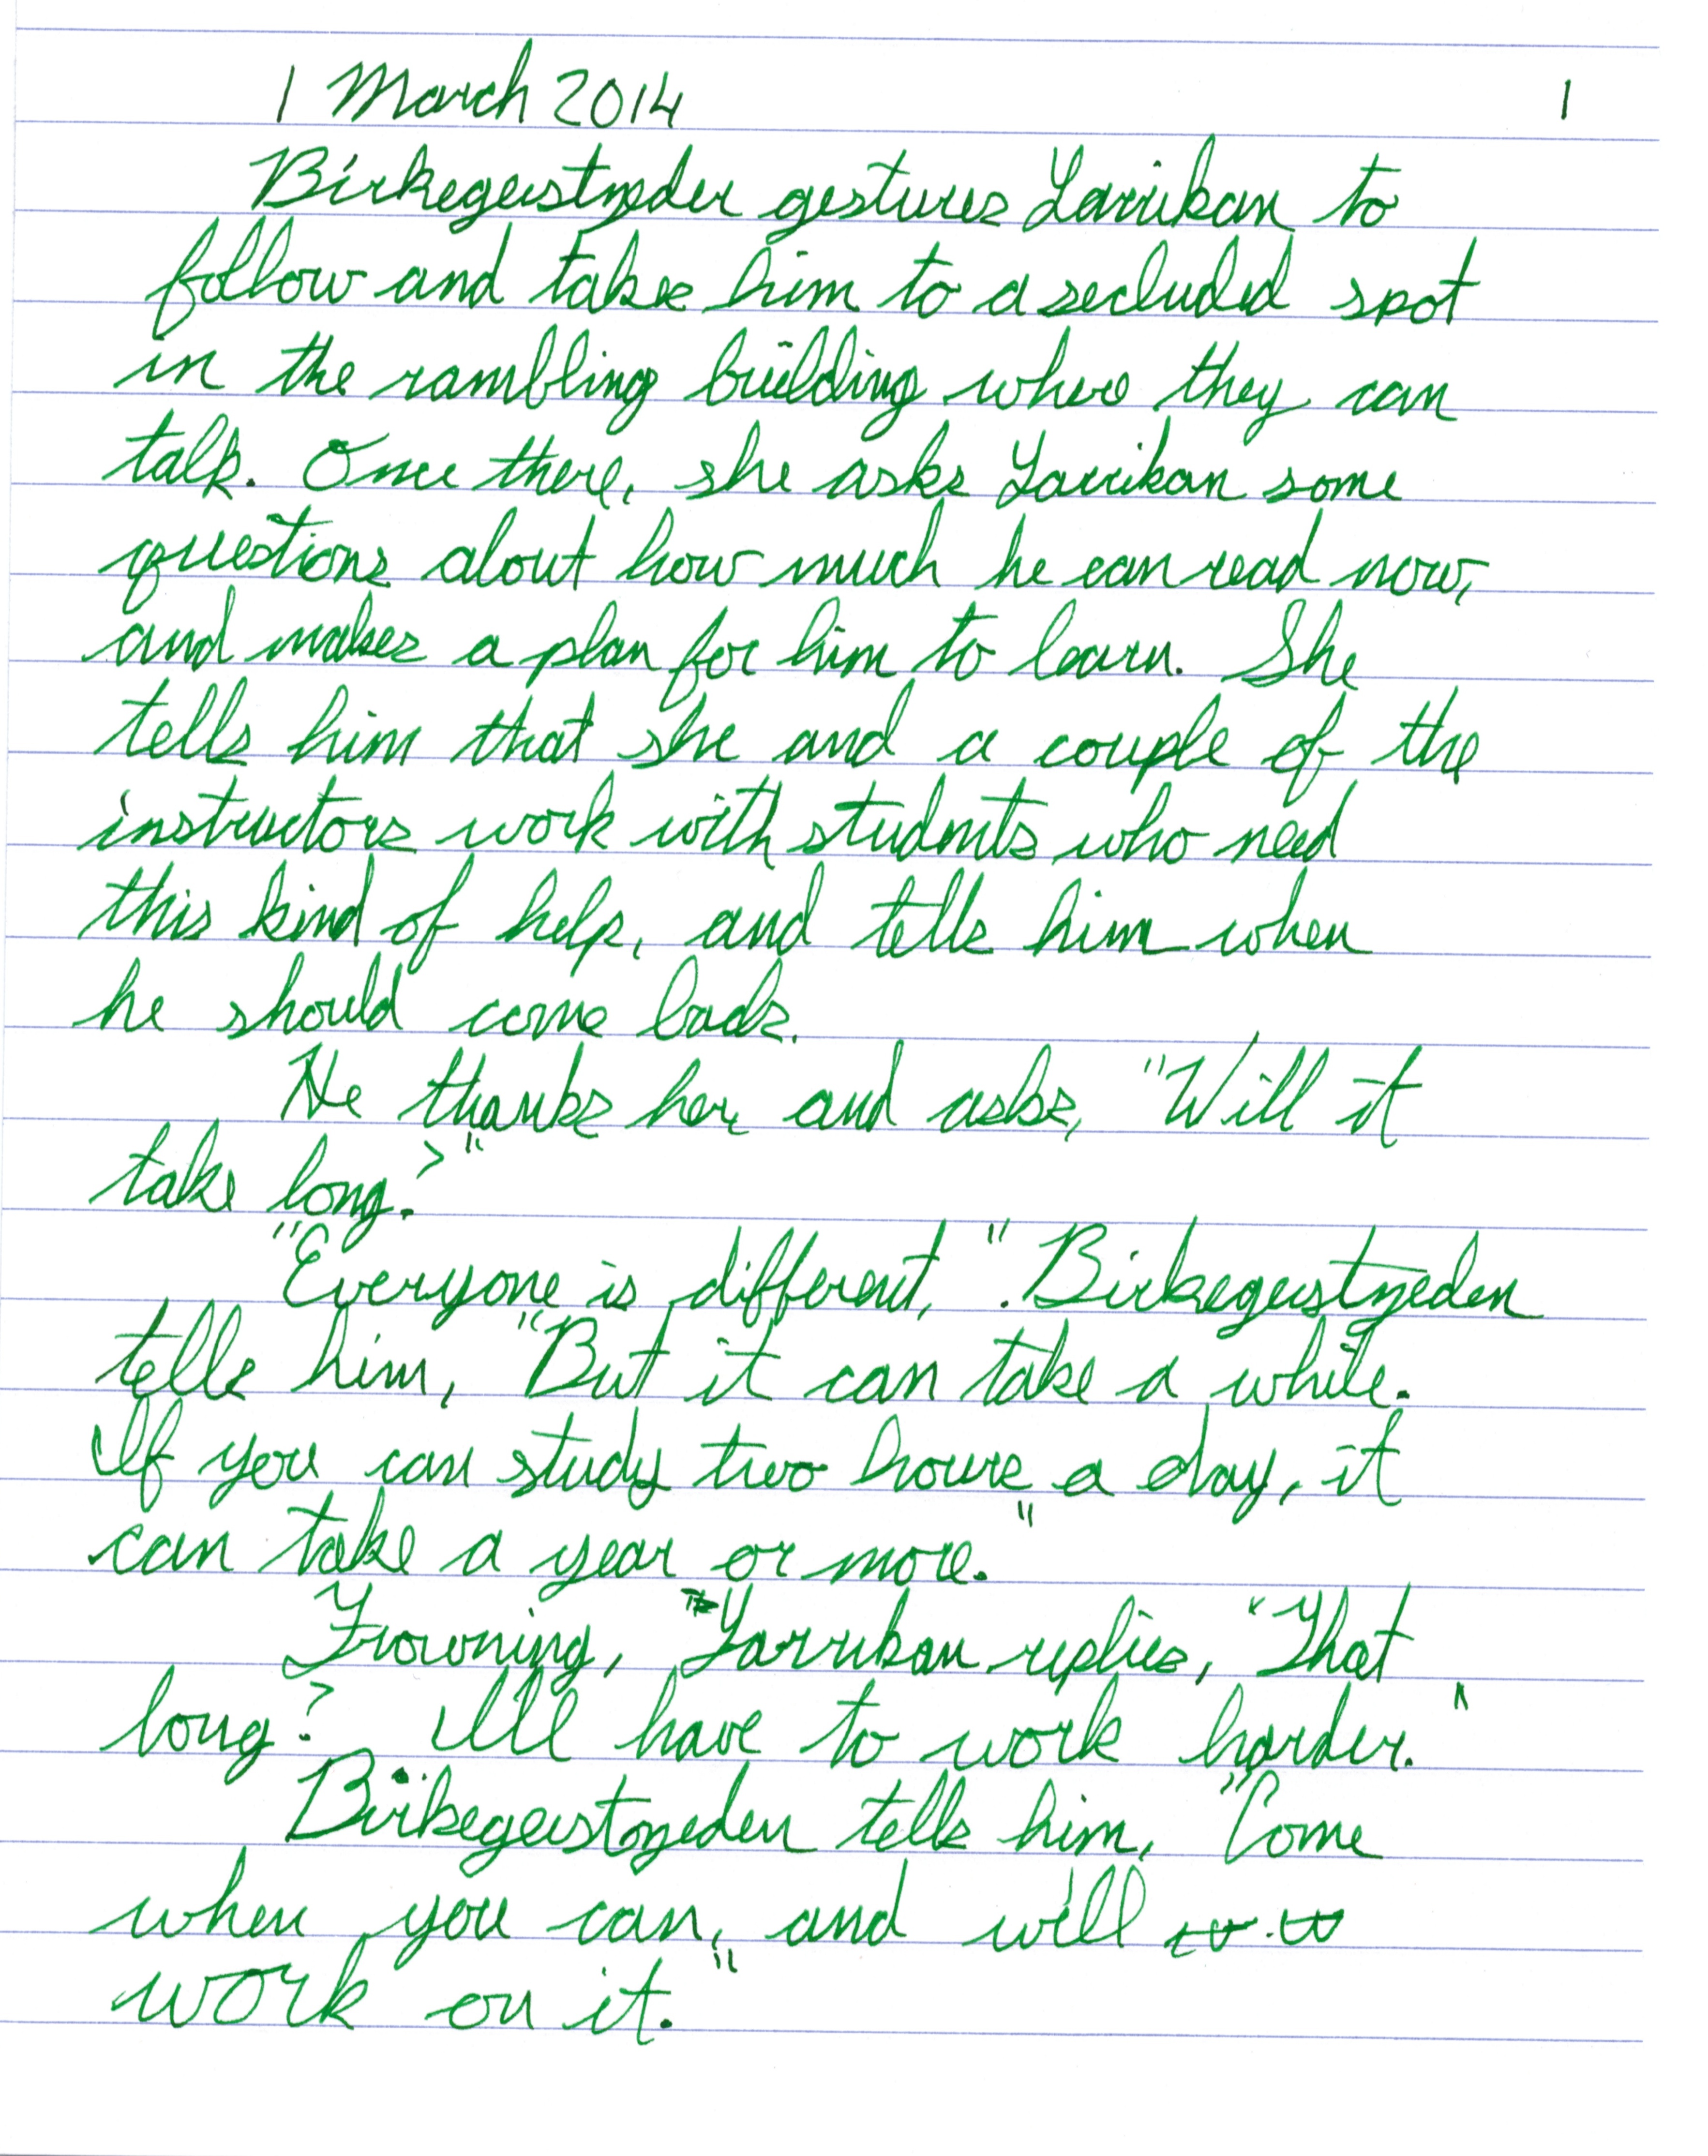 1 March 2014 1
Birkegeistzeder gestures Yarrikan to
follow and takes him to a secluded spot
in the rambling building where they can
talk. Once there, she asks Yarrikan some
questions about how much he can read now,
and makes a plan for him to learn. She
tells him that she and a couple of the
instructors work with students who need
this kind of help, and tells him when
he should come back.
He thanks her and asks, "Will it
take long?"
"Everyone is different," Birkegeistzeden
tells him, "But it can take a while.
If you can study two hours a day, it
can take a year or more."
Frowning, Yarrikan replies, "That
long? I'll have to work harder."
Birkegeistzeden tells him, "Come
when you can, and we'll
work on it."